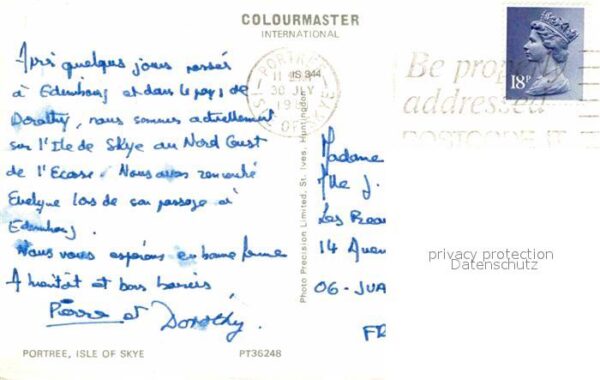 COLOURMASTER
INTERNATIONAL
Après quelques jours passés
à Edimbourg et dans le pays de
Dorothy, nous sommes actuellement
sur l'Ile de Skye au Nord Ouest
de l'Ecosse. Nous avons rencontré
Evelyne lors de son passage à
Edimbourg.
Nous vous espérons en bonne forme
A bientôt et bons baisers
Pierre et Dorothy.
PORTREE, ISLE OF SKYE
PT36248
Photo Precision Limited, St. Ives, Huntingdon
PORTREE
30 JLY
ISLE OF SKYE
Be properly
addressed
POSTCODE IT
18P
Madame
Mle J.
Les
14
06 - JUA
FR
privacy protection
Datenschutz